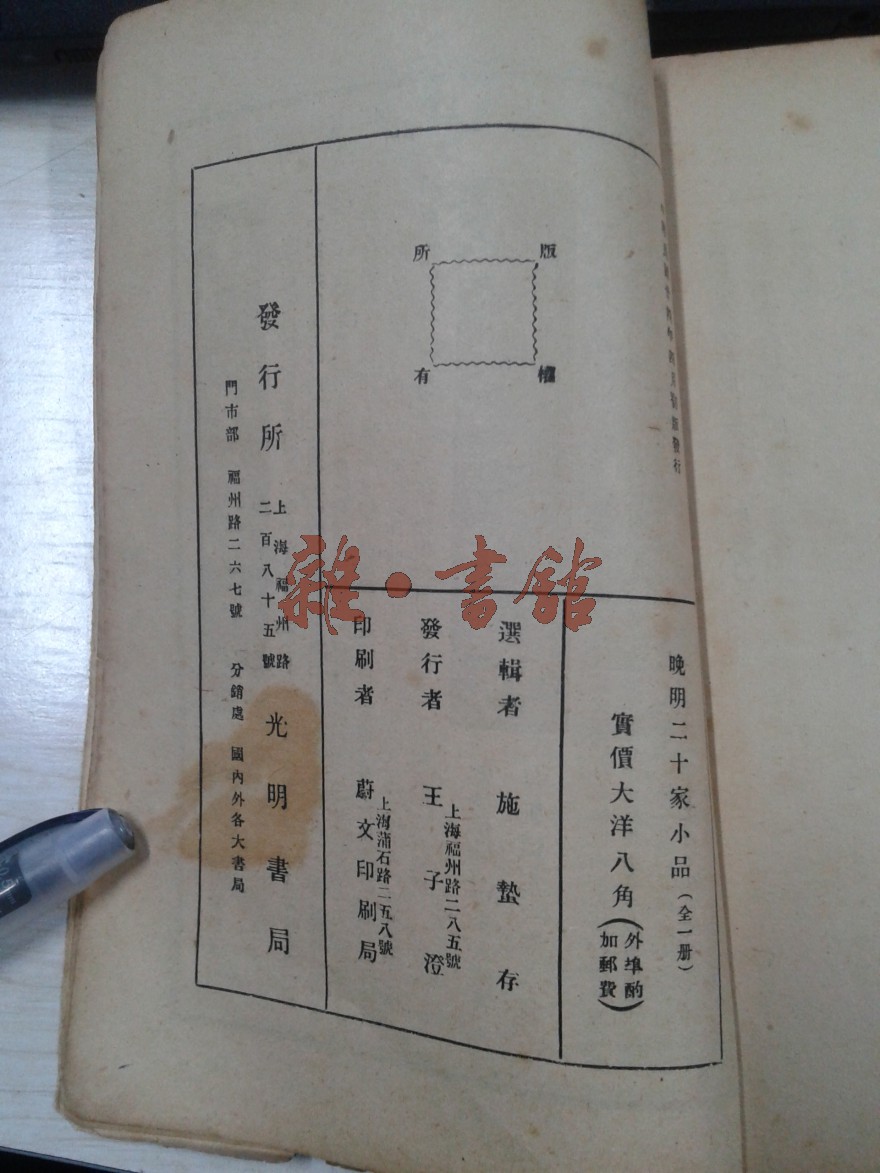 晚明二十家小品（全一册）
實價大洋八角（外埠酌加郵費）
版權所有
選輯者 施蟄存
發行者 王子澄
上海福州路二八五號
印刷者 蔚文印刷局
上海蒲石路二五八號
發行所 上海福州路二百八十五號 光明書局
門市部 福州路二六七號 分銷處 國內外各大書局
雜·書館